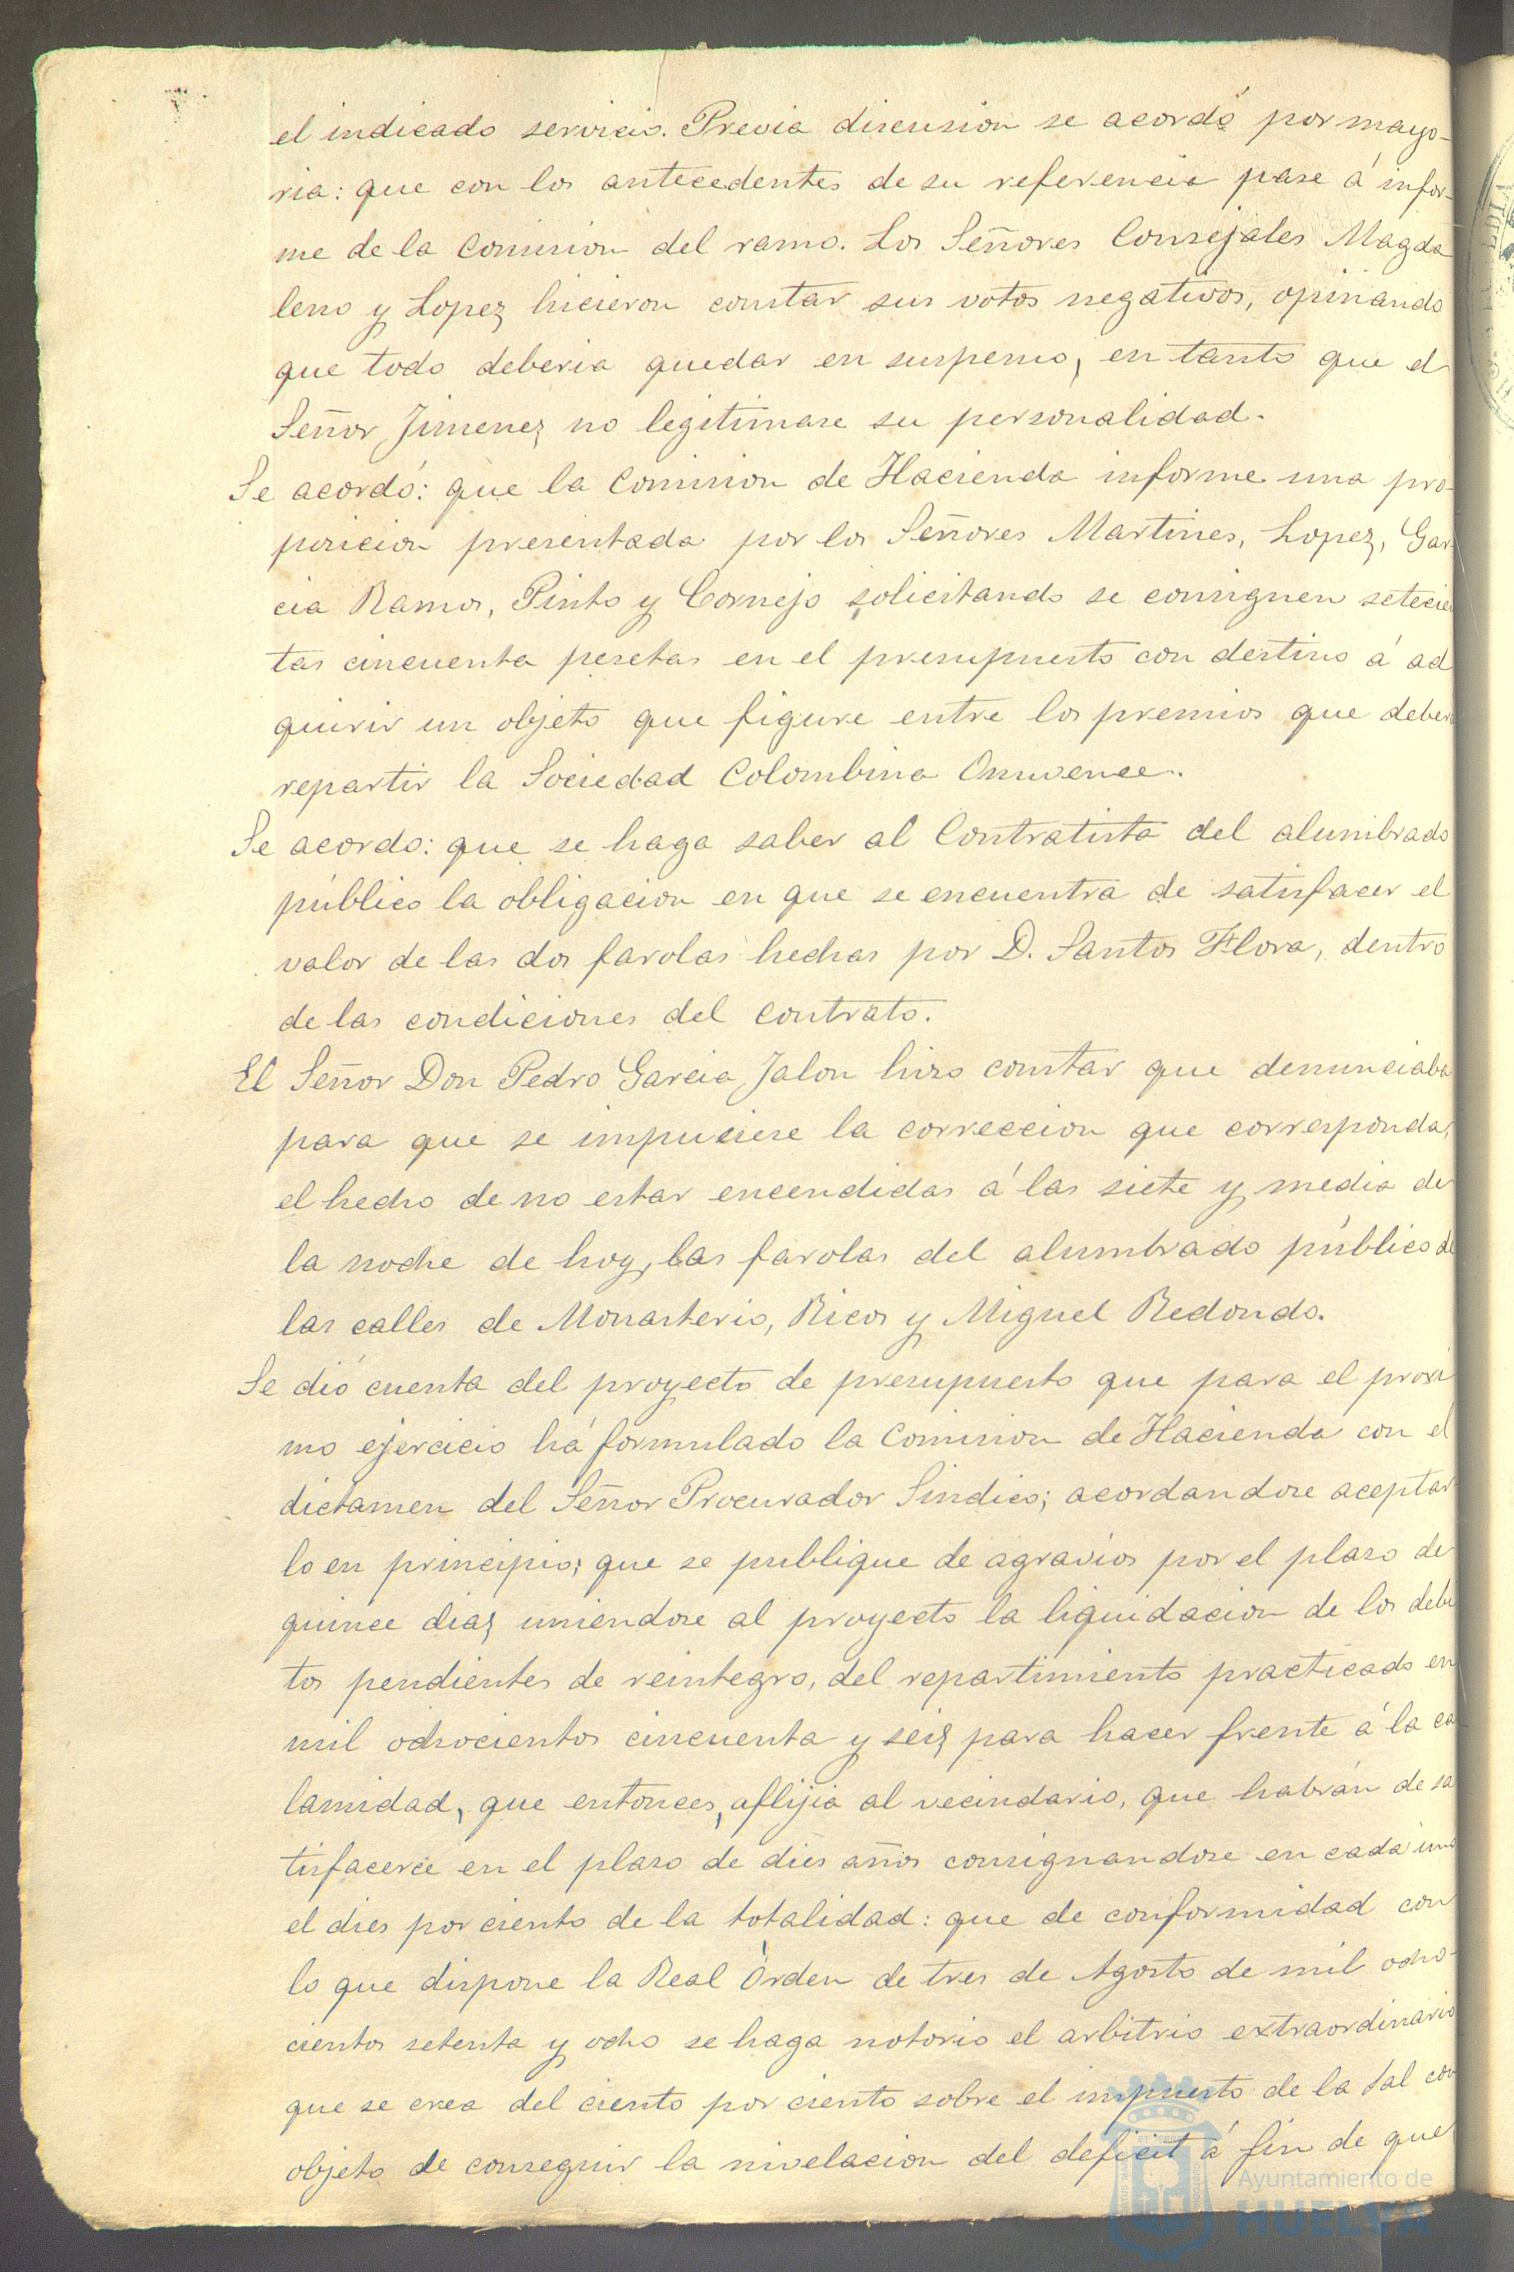 el indicado servicio. Previa discusion se acordó por mayo-
ria: que con los antecedentes de su referencia pase á infor-
me de la Comision del ramo. Los Señores Consejales Magda
leno y Lopez hicieron constar sus votos negativos, opinando
que todo deberia quedar en suspenso, en tanto que el
Señor Jimenez no legitimase su personalidad.
Se acordó: que la Comision de Hacienda informe una pro-
posicion presentada por los Señores Martines, Lopez, Gar-
cia Ramos, Pinto y Cornejo solicitando se consignen setecien
tas cincuenta pesetas en el presupuesto con destino á ad
quirir un objeto que figure entre los premios que deberá
repartir la Sociedad Colombina Onuvence.
Se acordo: que se haga saber al Contratista del alumbrado
público la obligacion en que se encuentra de satisfacer el
valor de las dos farolas hechas por D. Santos Flora, dentro
de las condiciones del contrato.
El Señor Don Pedro Garcia Jalon hizo constar que denunciaba
para que se impuciese la correccion que corresponda,
el hecho de no estar encendidas á las siete y media de
la noche de hoy, las farolas del alumbrado público de
las calles de Monasterio, Ricos y Miguel Redondo.
Se dió cuenta del proyecto de presupuesto que para el proxi
mo ejercicio há formulado la Comision de Hacienda con el
dictamen del Señor Procurador Sindico; acordandose aceptar
lo en principio; que se publique de agravios por el plaso de
quince diaz uniendose al proyecto la liquidacion de los debi
tos pendientes de reintegro, del repartimiento practicado en
mil ochocientos cincuenta y seiz para hacer frente á la ca
lamidad, que entonces, aflijia al vecindario, que habrán de sa
tisfacerce en el plaso de dies años consignandose en cada uno
el dies por ciento de la totalidad: que de conformidad con
lo que dispone la Real Orden de tres de Agosto de mil ocho-
cientos setenta y ocho se haga notorio el arbitrio extraordinario
que se crea del ciento por ciento sobre el impuesto de la sal con
objeto de conseguir la nivelacion del deficit á fin de que
Ayuntamiento de
HUELVA